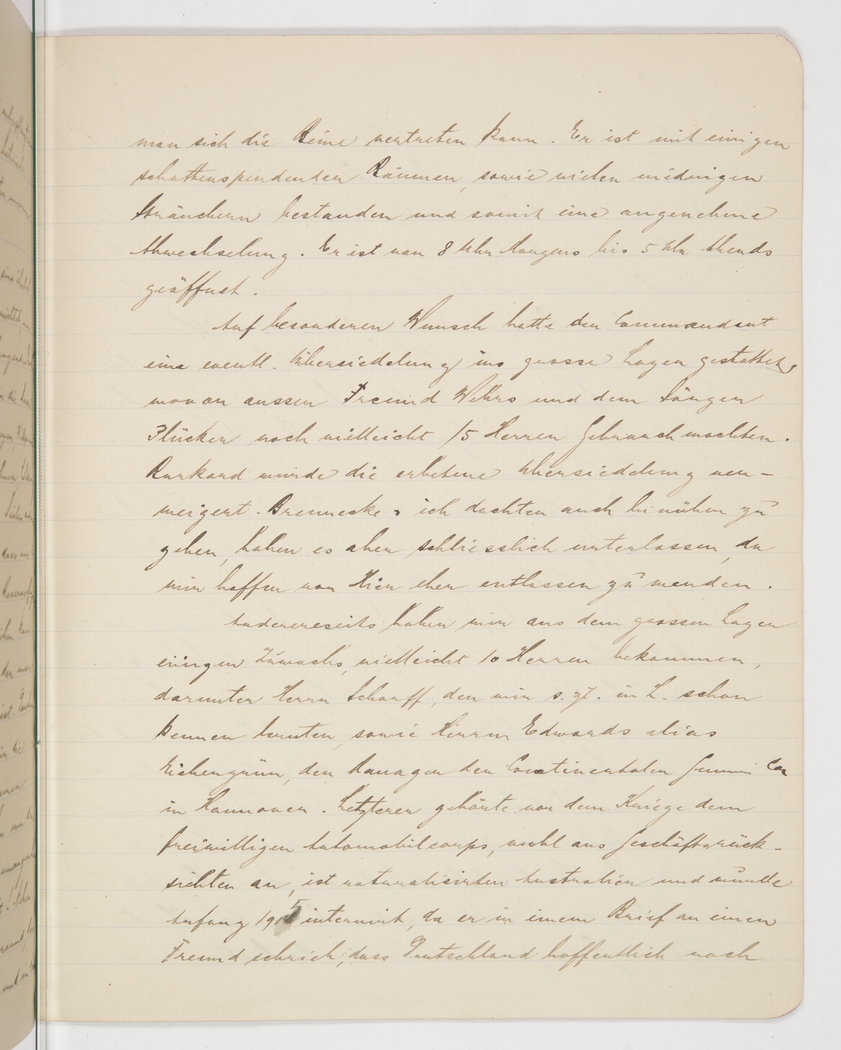 man sich die Beine vertreten kann. Er ist mit einigen
schattenspendenden Bäumen, sowie vielen niedrigen
Sträuchern bestanden und somit eine angenehme
Abwechselung. Er ist von 8 Uhr Morgens bis 5 Uhr Abends
geöffnet.
Auf besonderen Wunsch hatte der Commandant
eine eventl. Übersiedelung ins grosse Lager gestattet,
wovon aussen Freund Wehrs und dem Sänger
Plücker noch vielleicht 15 Herren Gebrauch machten.
Burkard wurde die erbetene Übersiedelung ver-
weigert. Brennecke & ich dachten auch hinüber zu
gehen, haben es aber schliesslich unterlassen, da
wir hoffen von Hier eher entlassen zu werden.
Andererseits haben wir aus dem grossen Lager
einigen Zuwachs, vielleicht 10 Herren bekommen,
darunter Herrn Scharff, den wir s. Zt. in L. schon
kennen lernten, sowie Herrn Edwards alias
Eichengrün, den Manager der Continentalen Gummi Co
in Hannover. Letzterer gehörte vor dem Kriege dem
freiwilligen Automobilcorps, wohl aus Geschäftsrück-
sichten an, ist naturalisirter Australier und wurde
Anfang 1915 internirt, da er in einem Brief an einen
Freund schrieb, dass Deutschland hoffentlich noch